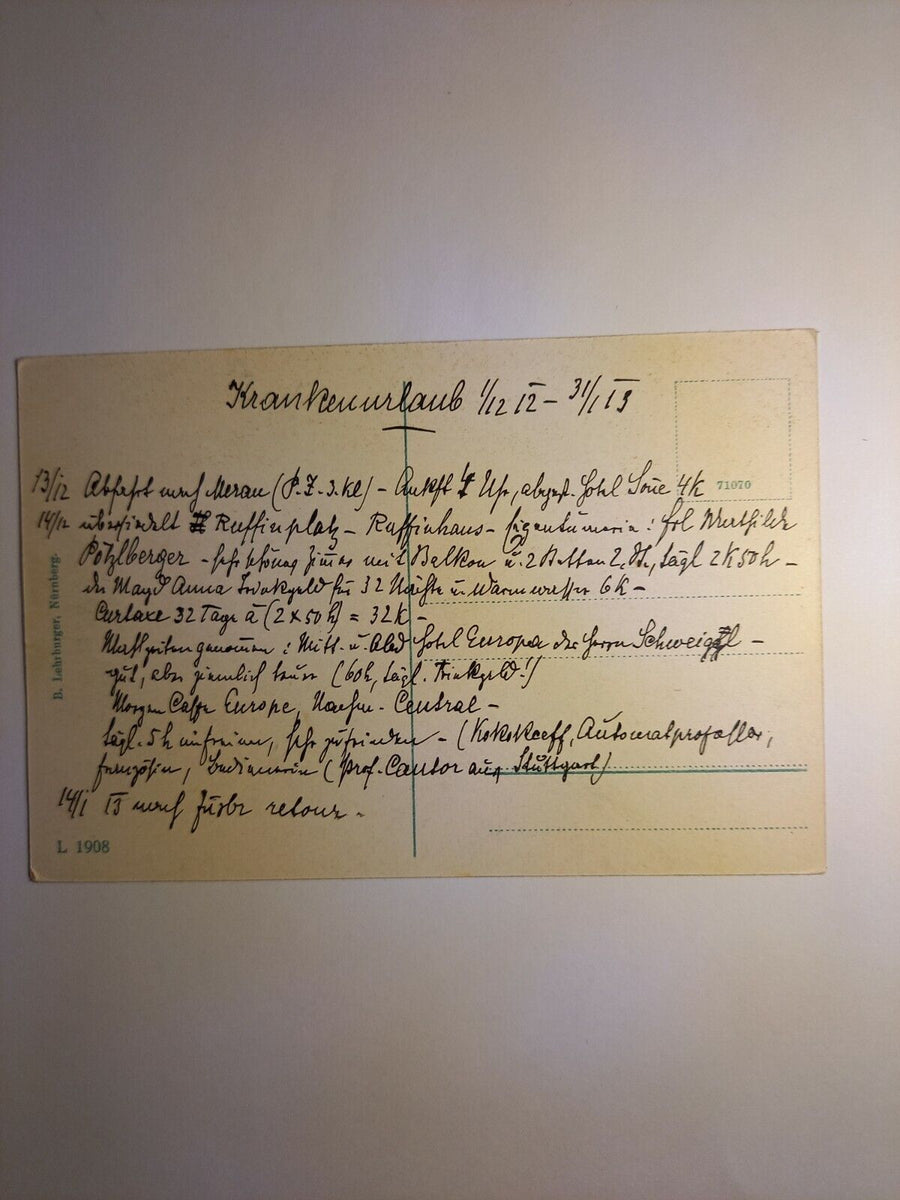 Krankenurlaub 1/12 12 – 31/1 13
13/12 Abfahrt nach Meran (P.Z. 3. Kl) – Ankft 4 Uhr, abgest. Hotel Sonne 4 K
71070
14/12 übersiedelt Ruffinplatz – Ruffinhaus – Eigentümerin: Frl Mathilde
Pötzlberger – sehr schönes Zimmer mit Balkon u. 2 Betten 2. St., tägl 2 K 50 h –
der Magd Anna Trinkgeld für 32 Nächte u. Warmwasser 6 K –
Curtaxe 32 Tage à (2 x 50 h) = 32 K –
Mahlzeiten genommen: Mitt- u. Abd Hotel Europa des Herrn Schweiggl –
gut, aber ziemlich teuer (60 h, tägl. Trinkgeld!)
Morgen Caffe Europe, Nachm. Central –
tägl. 5 h im freien, sehr zufrieden – (Kokskoeff, Automatprofessor,
französin, (Prof. Cantor aus Stuttgart)
14/1 13 nach Insbr retour.
L 1908
B. Lehrburger, Nürnberg.